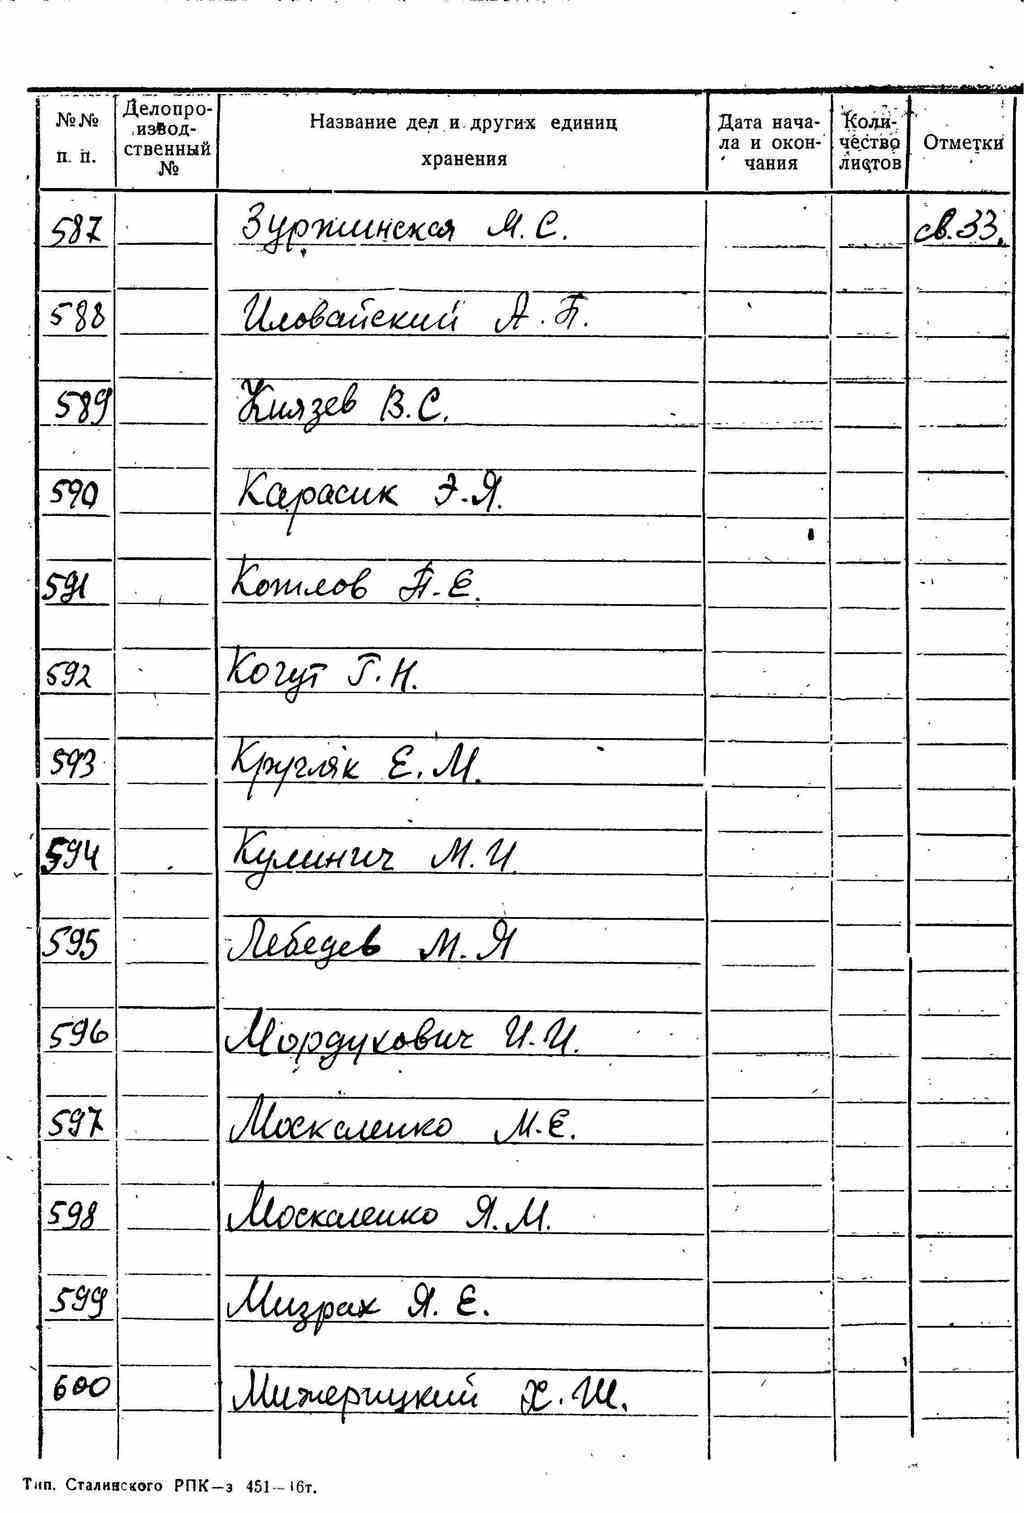 №№ п. п.
Делопроизводственный №
Название дел и других единиц хранения
Дата начала и окончания
Количество листов
Отметки
587 Зуржинская М. С. св. 33.
588 Иловайский А. П.
589 Князев В. С.
590 Карасик Э. Я.
591 Котлов П. Е.
592 Когут Г. Н.
593 Кругляк Е. М.
594 Кулинич М. И.
595 Лебедев М. Я
596 Мордухович И. И.
597 Москаленко М. Е.
598 Москаленко Я. М.
599 Мизрах Я. Е.
600 Мижерицкий Х. Ш.
Тип. Сталинского РПК—з 451—16т.